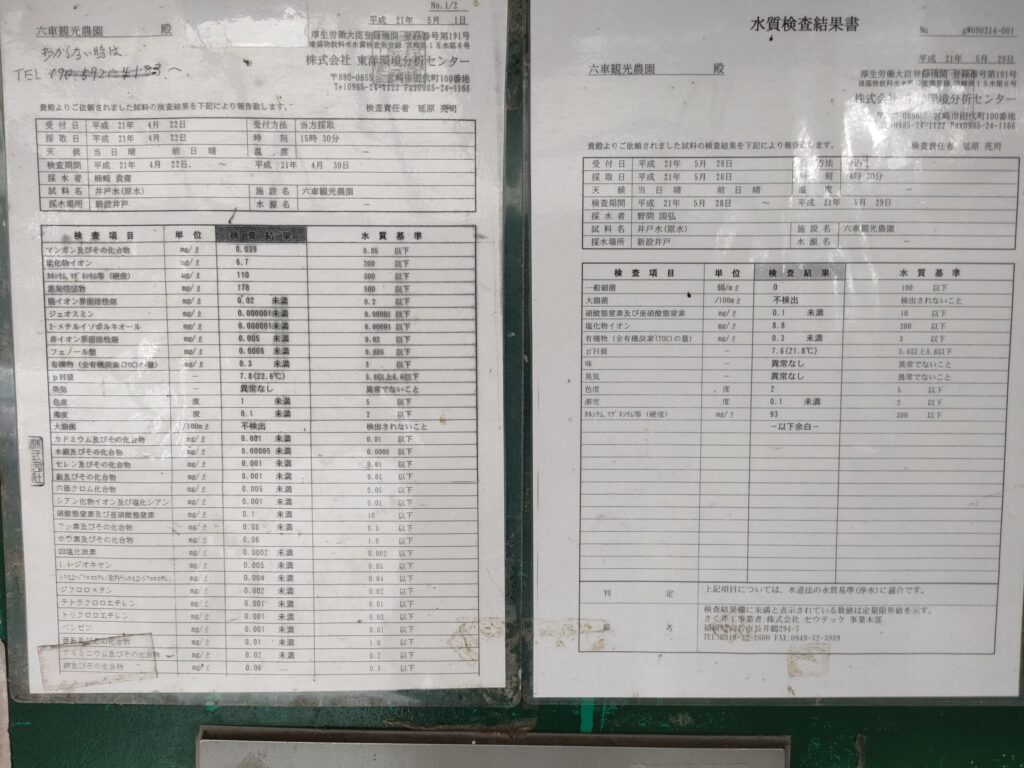 No.1/2
平成 21年 5月 1日
六車観光農園 殿
厚生労働大臣登録機関 登録番号第191号
わからない時は
株式会社 東洋環境分析センター
TEL
〒880-0855 宮崎市田代町100番地
貴殿よりご依頼されました試料の検査結果を下記により報告致します。 検査責任者 延原 亮司
受付日 平成 21年 4月 22日 受付方法 当方採取
採取日 平成 21年 4月 22日 時刻 15時 30分
天候 当日 晴 前日 晴 温度 －
検査期間 平成 21年 4月 22日 ～ 平成 21年 4月 30日
採水者
試料名 井戸水(原水) 施設名 六車観光農園
採水場所 新設井戸 水源名 －
検査項目 単位 検査結果 水質基準
マンガン及びその化合物 mg/ℓ 0.039 0.05 以下
塩化物イオン mg/ℓ 6.7 200 以下
ｶﾙｼｳﾑ,ﾏｸﾞﾈｼｳﾑ等 (硬度) mg/ℓ 110 300 以下
蒸発残留物 mg/ℓ 178 500 以下
陰イオン界面活性剤 mg/ℓ 0.02 未満 0.2 以下
ジェオスミン mg/ℓ 0.000001未満 0.00001 以下
2-メチルイソボルネオール mg/ℓ 0.000001未満 0.00001 以下
非イオン界面活性剤 mg/ℓ 0.005 未満 0.02 以下
フェノール類 mg/ℓ 0.0005 未満 0.005 以下
有機物 (全有機炭素(TOC)の量) mg/ℓ 0.3 未満 3 以下
pH値 － 7.8(22.6℃) 5.8以上8.6以下
臭気 － 異常なし 異常でないこと
色度 度 1 未満 5 以下
濁度 度 0.1 未満 2 以下
大腸菌 /100mℓ 不検出 検出されないこと
カドミウム及びその化合物 mg/ℓ 0.001 未満 0.01 以下
水銀及びその化合物 mg/ℓ 0.00005 未満 0.0005 以下
セレン及びその化合物 mg/ℓ 0.001 未満 0.01 以下
鉛及びその化合物 mg/ℓ 0.001 未満 0.01 以下
六価クロム化合物 mg/ℓ 0.005 未満 0.05 以下
シアン化物イオン及び塩化シアン mg/ℓ 0.001 未満 0.01 以下
硝酸態窒素及び亜硝酸態窒素 mg/ℓ 0.1 未満 10 以下
フッ素及びその化合物 mg/ℓ 0.08 未満 0.8 以下
ホウ素及びその化合物 mg/ℓ 0.06 1.0 以下
四塩化炭素 mg/ℓ 0.0002 未満 0.002 以下
1,4-ジオキサン mg/ℓ 0.005 未満 0.05 以下
mg/ℓ 0.004 未満 0.04 以下
ジクロロメタン mg/ℓ 0.002 未満 0.02 以下
テトラクロロエチレン mg/ℓ 0.001 未満 0.01 以下
トリクロロエチレン mg/ℓ 0.001 未満 以下
ベンゼン mg/ℓ 0.001 未満 0.01 以下
亜鉛及びその化合物 mg/ℓ 未満 1.0 以下
アルミニウム及びその化合物 mg/ℓ 0.02 未満 0.2 以下
鉄及びその化合物 mg/ℓ 0.06 － 0.3 以下
水質検査結果書
No gW090314-601
平成 21年 5月 29日
厚生労働大臣登録機関 登録番号第191号
六車観光農園 殿
株式会社 東洋環境分析センター
〒880-0855 宮崎市田代町100番地
Tel0985-24-1122 Fax0985-24-1166
貴殿よりご依頼されました試料の検査結果を下記により報告します。 検査責任者 延原 亮司
受付日 平成 21年 5月 28日 方法
採取日 平成 21年 5月 28日 刻 30分
天候 当日 晴 前日 晴 温度 －
検査期間 平成 21年 5月 28日 ～ 平成 21年 5月 29日
採水者 野間 国弘
試料名 井戸水(原水) 施設名 六車観光農園
採水場所 新設井戸 水源名 －
検査項目 単位 検査結果 水質基準
一般細菌 個/mℓ 0 100 以下
大腸菌 /100mℓ 不検出 検出されないこと
硝酸態窒素及び亜硝酸態窒素 mg/ℓ 0.1 未満 10 以下
塩化物イオン mg/ℓ 8.8 200 以下
有機物 (全有機炭素(TOC)の量) mg/ℓ 0.3 未満 3 以下
pH値 － 7.6(21.8℃) 5.8以上8.6以下
味 － 異常なし 異常でないこと
臭気 － 異常なし 異常でないこと
色度 度 2 5 以下
濁度 度 0.1 未満 2 以下
ｶﾙｼｳﾑ,ﾏｸﾞﾈｼｳﾑ等 (硬度) mg/ℓ 93 300 以下
－以下余白－
判定 上記項目については、水道法の水質基準(浄水)に適合です。
検査結果欄に未満と表示されている数値は定量限界値を示す。
備考 さく井工事業者:株式会社 セウテック 事業本部
市長井鶴294-7
TEL:0949-32-2600 FAX:0949-32-3989